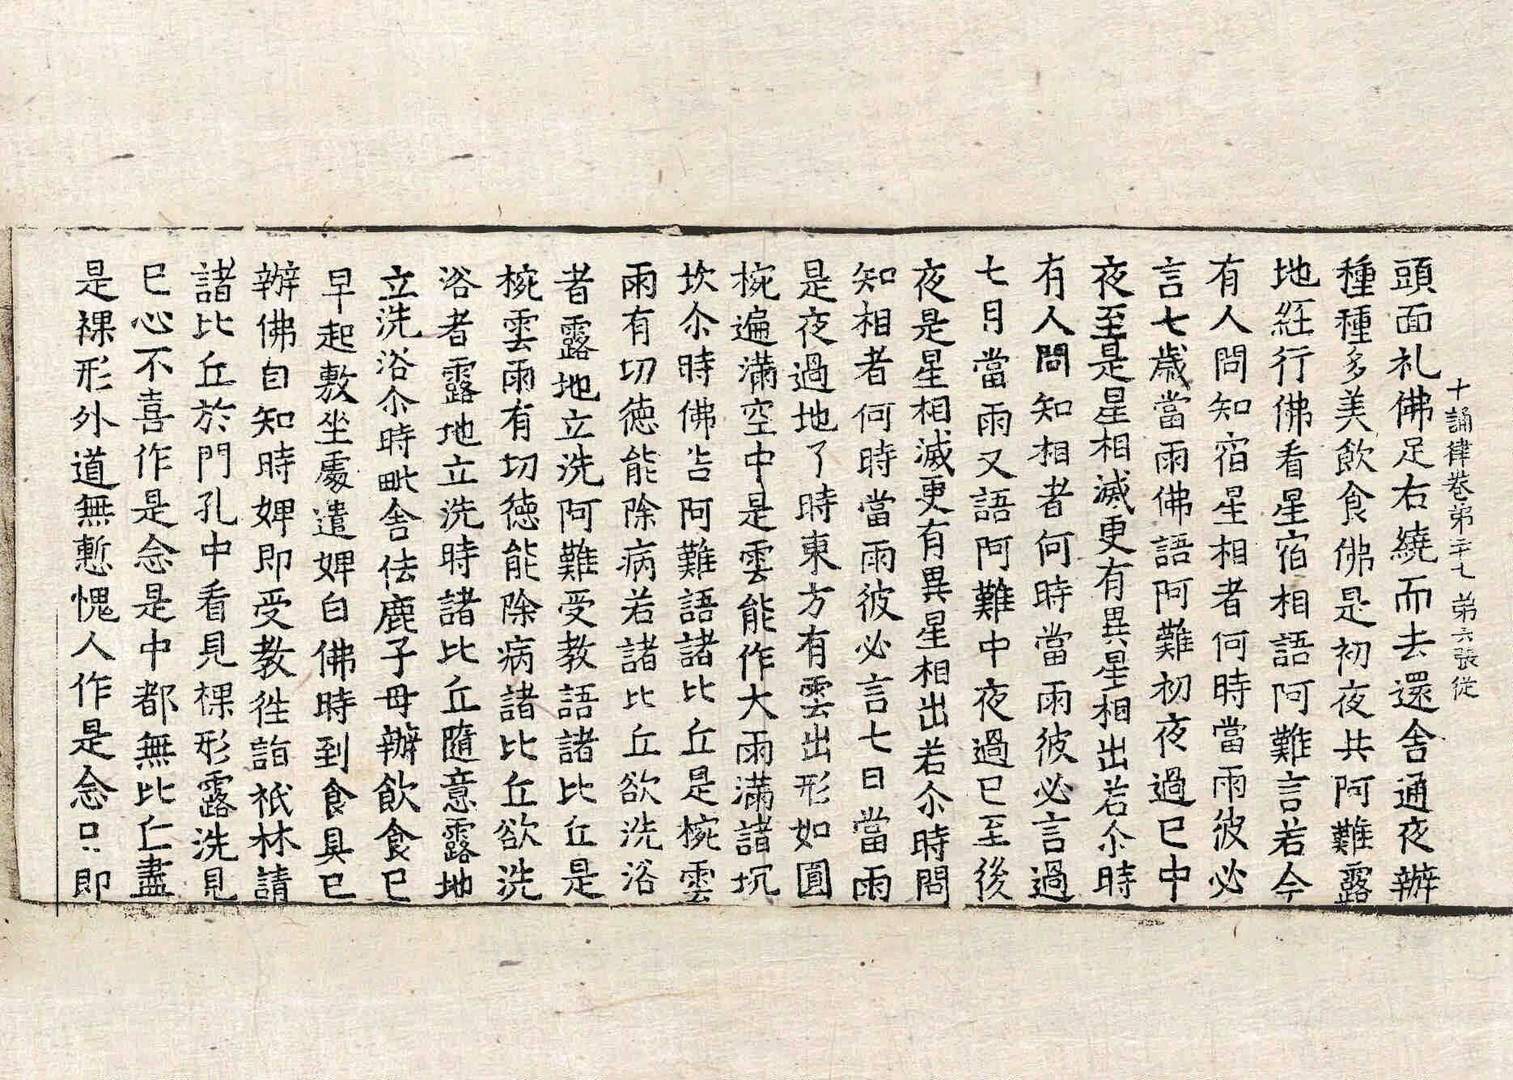 十誦律卷第二十七　第六張　從
頭面礼佛足右繞而去還舍通夜辦
種種多美飲食佛是初夜共阿難露
地経行佛看星宿相語阿難言若今
有人問知宿星相者何時當雨彼必
言七歲當雨佛語阿難初夜過已中
夜至是星相滅更有異星相出若尒時
有人問知相者何時當雨彼必言過
七月當雨又語阿難中夜過已至後
夜是星相滅更有異星相出若尒時問
知相者何時當雨彼必言七日當雨
是夜過地了時東方有雲出形如圓
椀遍滿空中是雲能作大雨滿諸坑
坎尒時佛告阿難語諸比丘是椀雲
雨有切德能除病若諸比丘欲洗浴
者露地立洗阿難受教語諸比丘是
椀雲雨有切德能除病諸比丘欲洗
浴者露地立洗時諸比丘隨意露地
立洗浴尒時毗舍佉鹿子母辦飲食已
早起敷坐處遣婢白佛時到食具已
辦佛自知時婢即受教徃詣祇林請
諸比丘於門孔中看見裸形露洗見
已心不喜作是念是中都無比丘盡
是裸形外道無慙愧人作是念已即